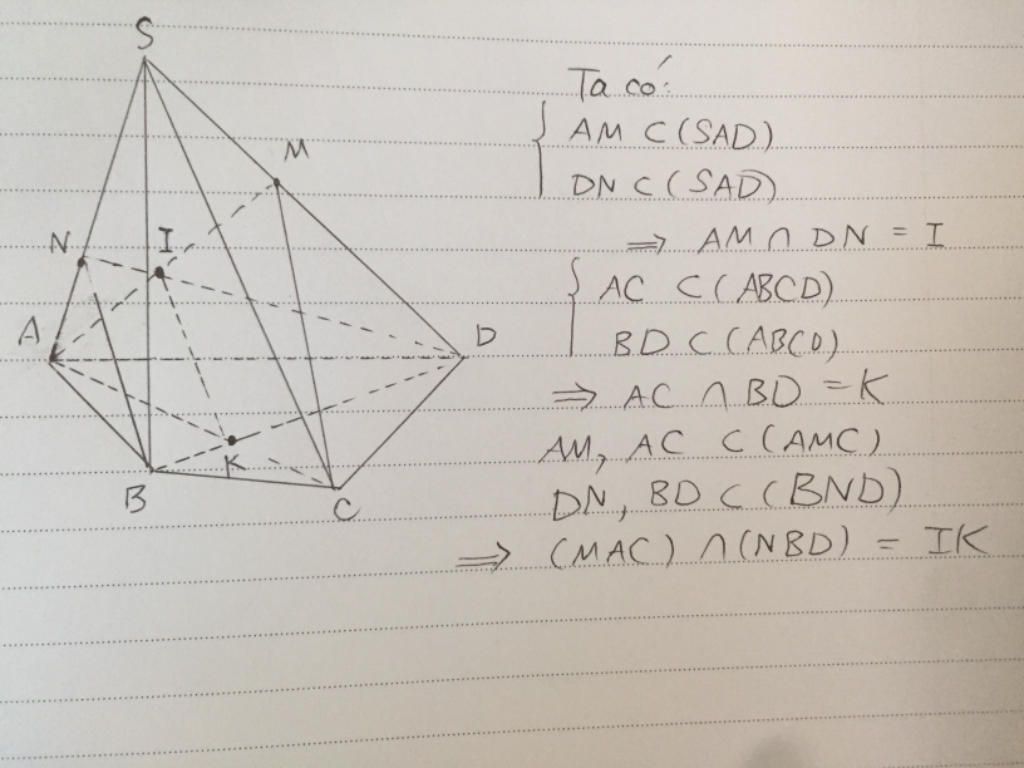 S
M
N
I
A
D
K
B
C
Ta có:
AM ⊂ (SAD)
DN ⊂ (SAD)
⇒ AM ∩ DN = I
AC ⊂ (ABCD)
BD ⊂ (ABCD)
⇒ AC ∩ BD = K
AM, AC ⊂ (AMC)
DN, BD ⊂ (BND)
⇒ (MAC) ∩ (NBD) = IK